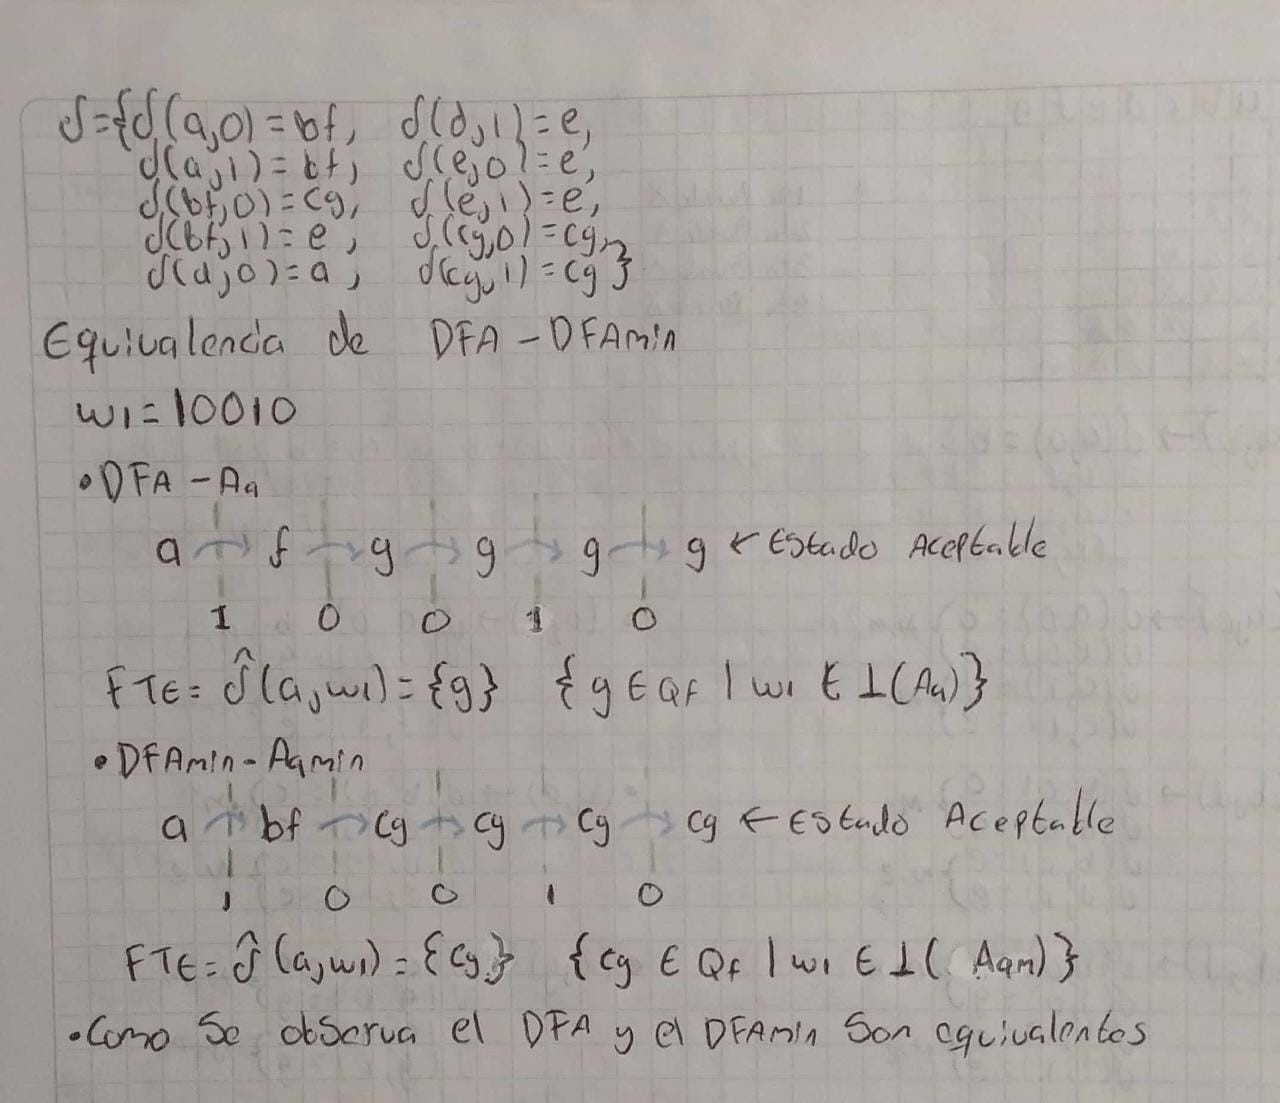 δ={δ(a,0)=bf, δ(d,1)=e,
δ(a,1)=bf, δ(e,0)=e,
δ(bf,0)=cg, δ(e,1)=e,
δ(bf,1)=e, δ(cg,0)=cg,
δ(d,0)=a, δ(cg,1)=cg}
Equivalencia de DFA-DFAmin
w1=10010
•DFA-Aa
a → f → g → g → g → g ← Estado Aceptable
1 0 0 1 0
FTE= δ̂(a,w1)={g} {g ∈ QF | w1 ∈ ⊥(Aa)}
•DFAmin-Aqmin
a → bf → cg → cg → cg → cg ← Estado Aceptable
1 0 0 1 0
FTE= δ̂(a,w1)={cg} {cg ∈ Qf | w1 ∈ ⊥(Aqm)}
•Como se observa el DFA y el DFAmin son equivalentes